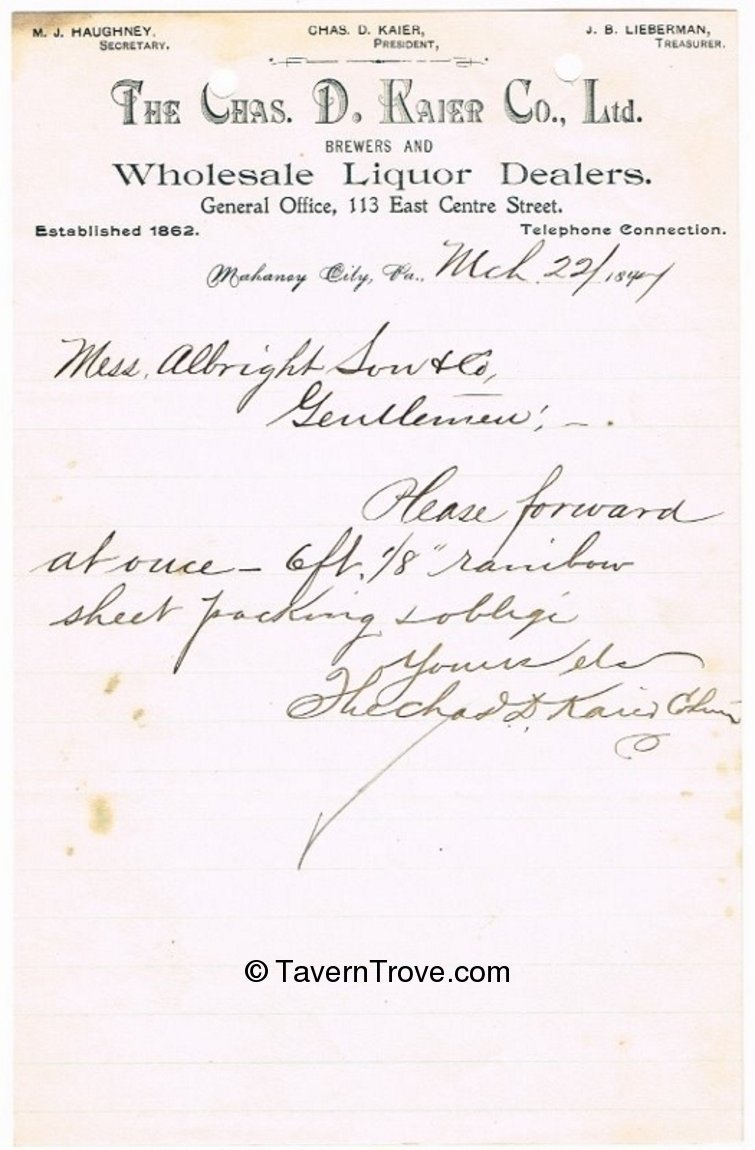 M. J. HAUGHNEY, SECRETARY.
CHAS. D. KAIER, PRESIDENT,
J. B. LIEBERMAN, TREASURER.
THE CHAS. D. KAIER CO., LTD.
BREWERS AND
Wholesale Liquor Dealers.
General Office, 113 East Centre Street.
Established 1862. Telephone Connection.
Mahanoy City, Pa., Mch. 22/ 18
Mess. Albright Son & Co,
Gentlemen: -
Please forward
at once - 6ft. 1/8" rainbow
sheet packing & oblige
Yours etc
The Chas D. Kaier Co
© TavernTrove.com